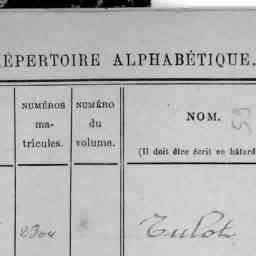 RÉPERTOIRE ALPHABÉTIQUE.
NUMÉROS
ma-
tricules.
NUMÉRO
du
volume.
NOM.
(Il doit être écrit en bâtard
59
2304
Tulot